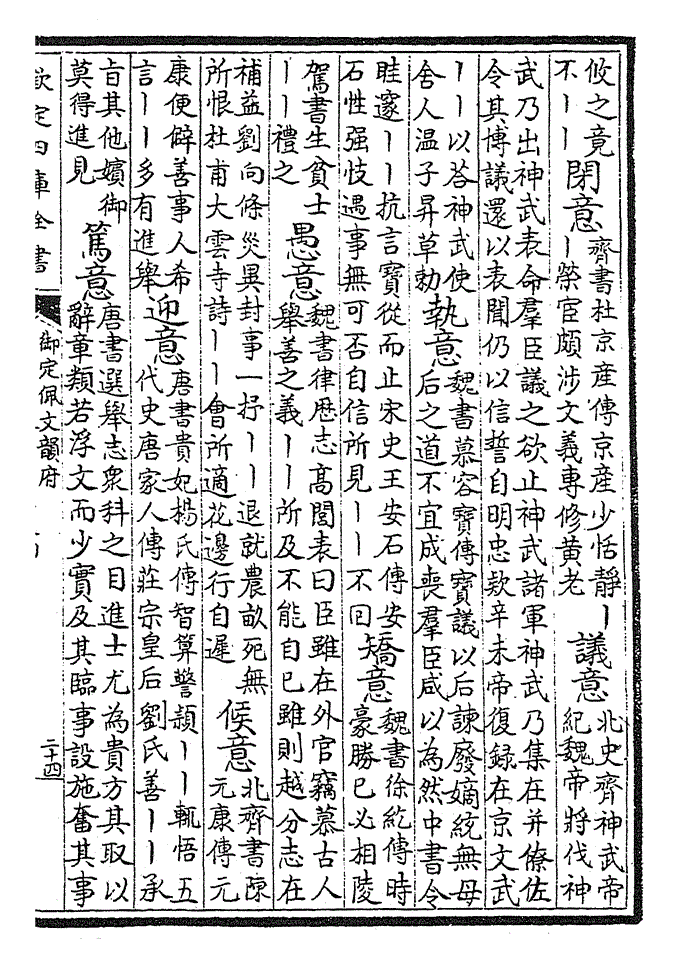 攸之竟不丨丨 閉意 齊書杜京産傳京産少恬靜丨丨榮宦頗涉文義專修黄老 議意 北史齊神武帝紀魏帝將伐神
武乃出神武表命羣臣議之欲止神武諸軍神武乃集在并僚佐令其博議還以表聞仍以信誓自明忠欵辛未帝復録在京文武
丨丨以荅神武使舍人温子昇草勅 執意 魏書慕容寶傳寶議以后諫廢嫡統無母后之道不宜成喪羣臣咸以為然中書令
眭邃丨丨抗言寶從而止宋史王安石傳安石性强忮遇事無可否自信所見丨丨不回 矯意 魏書徐紇傳時豪勝已必相陵
駕書生貧士丨丨禮之 愚意 魏書律歴志高閭表曰臣雖在外官竊慕古人舉善之義丨丨所及不能自已雖則越分志在
補益劉向條災異封事一抒丨丨退就農畝死無所恨杜甫大雲寺詩丨丨會所適花邊行自遲 候意 北齊書陳元康傳元
康便僻善事人希言丨丨多有進舉 迎意 唐書貴妃楊氏傳智算警頴丨丨輒悟五代史唐家人傳莊宗皇后劉氏善丨丨承
旨其他嬪御莫得進見 篤意 唐書選舉志衆科之目進士尤為貴方其取以辭章類若浮文而少實及其臨事設施奮其事
欽定四庫全書 御定佩文韻府 二十四